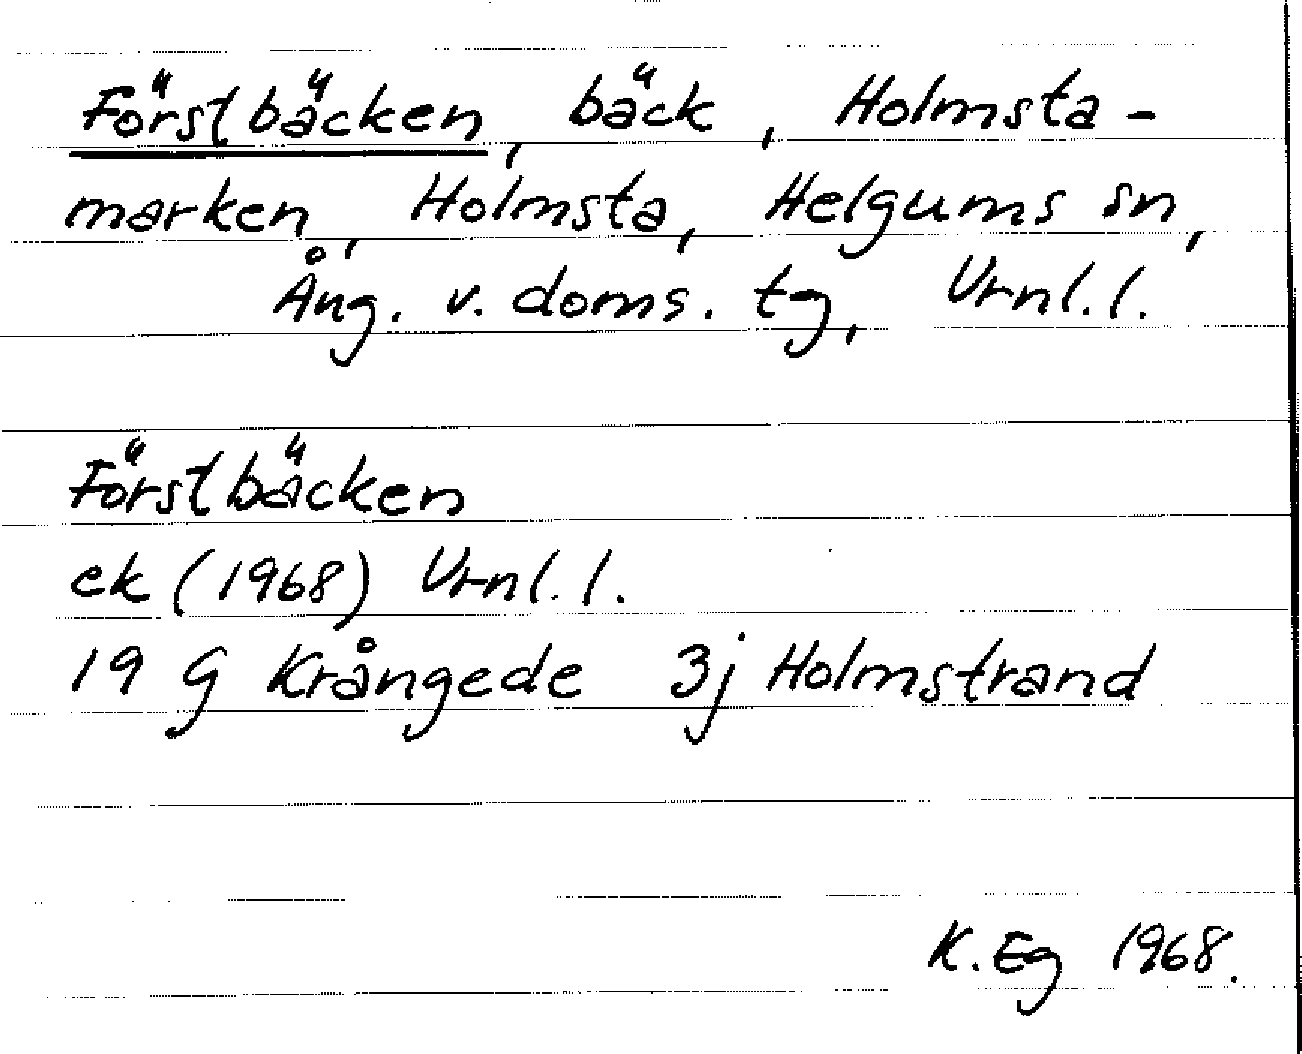 Förstbäcken, bäck, Holmsta-
marken, Holmsta, Helgums sn,
Ång. v. doms. tg, Vrnl. l.
Förstbäcken
ek (1968) Vrnl. l.
19 G Krångede 3j Holmstrand
K. Eg 1968.